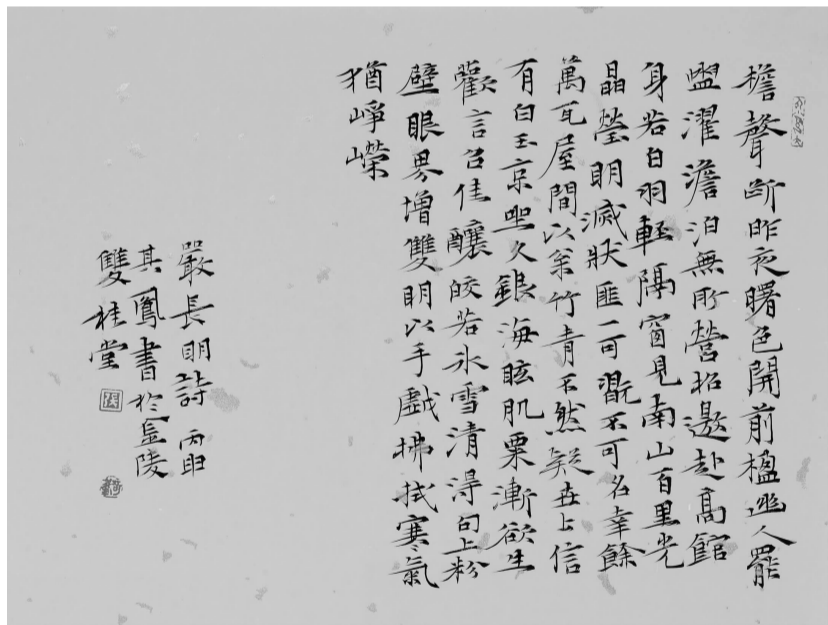 檐聲斷昨夜曙色開前楹幽人罷
盥濯澹泊無所營招邀赴高館
身若白羽輕隔窗見南山百里光
晶瑩明滅狀匪一可翫不可名幸餘
萬瓦屋間以翁竹青不然疑在上信
有白玉京坐久銀海眩肌栗漸欲生
歡言召佳釀皎若冰雪清得句上粉
壁眼界增雙明以手戲拂拭寒氣
猶崢嶸
嚴長明詩 丙申
其鳳書於金陵
雙桂堂